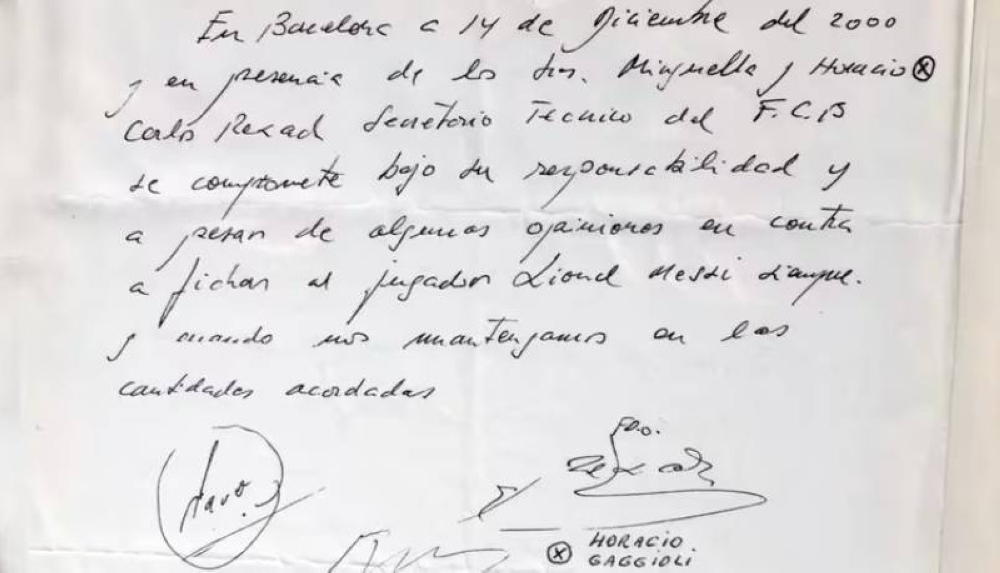 En Barcelona a 14 de Diciembre del 2000
y en presencia de los Srs. Minguella y Horacio ⓧ
Carlos Rexad Secretario Tecnico del F.C.B
se compromete bajo su responsabilidad y
a pesar de algunas opiniones en contra
a fichar al jugador Lionel Messi siempre.
y cuando nos mantengamos en las
cantidades acordadas
Fdo.
Rexach
ⓧ HORACIO
GAGGIOLI